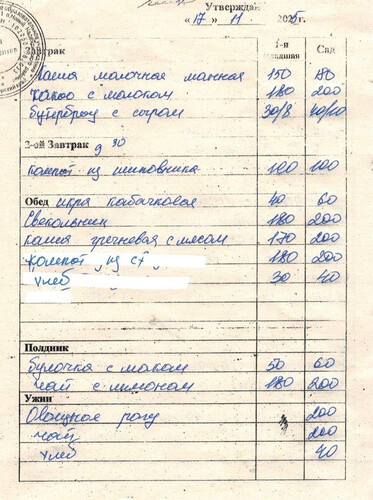 Утвержда
«17» 11 2025г.
Завтрак 1-я младшая Сад
каша молочная манная 150 180
какао с молоком 180 200
бутерброд с сыром 30/8 40/10
2-ой Завтрак 9 30
компот из шиповника 100 100
Обед икра кабачковая 40 60
Свекольник 180 200
каша гречневая с мясом 170 200
компот из с 180 200
хлеб 30 40
Полдник
Булочка с маком 50 60
чай с лимоном 180 200
Ужин
Овощное рагу 200
чай 200
хлеб 40